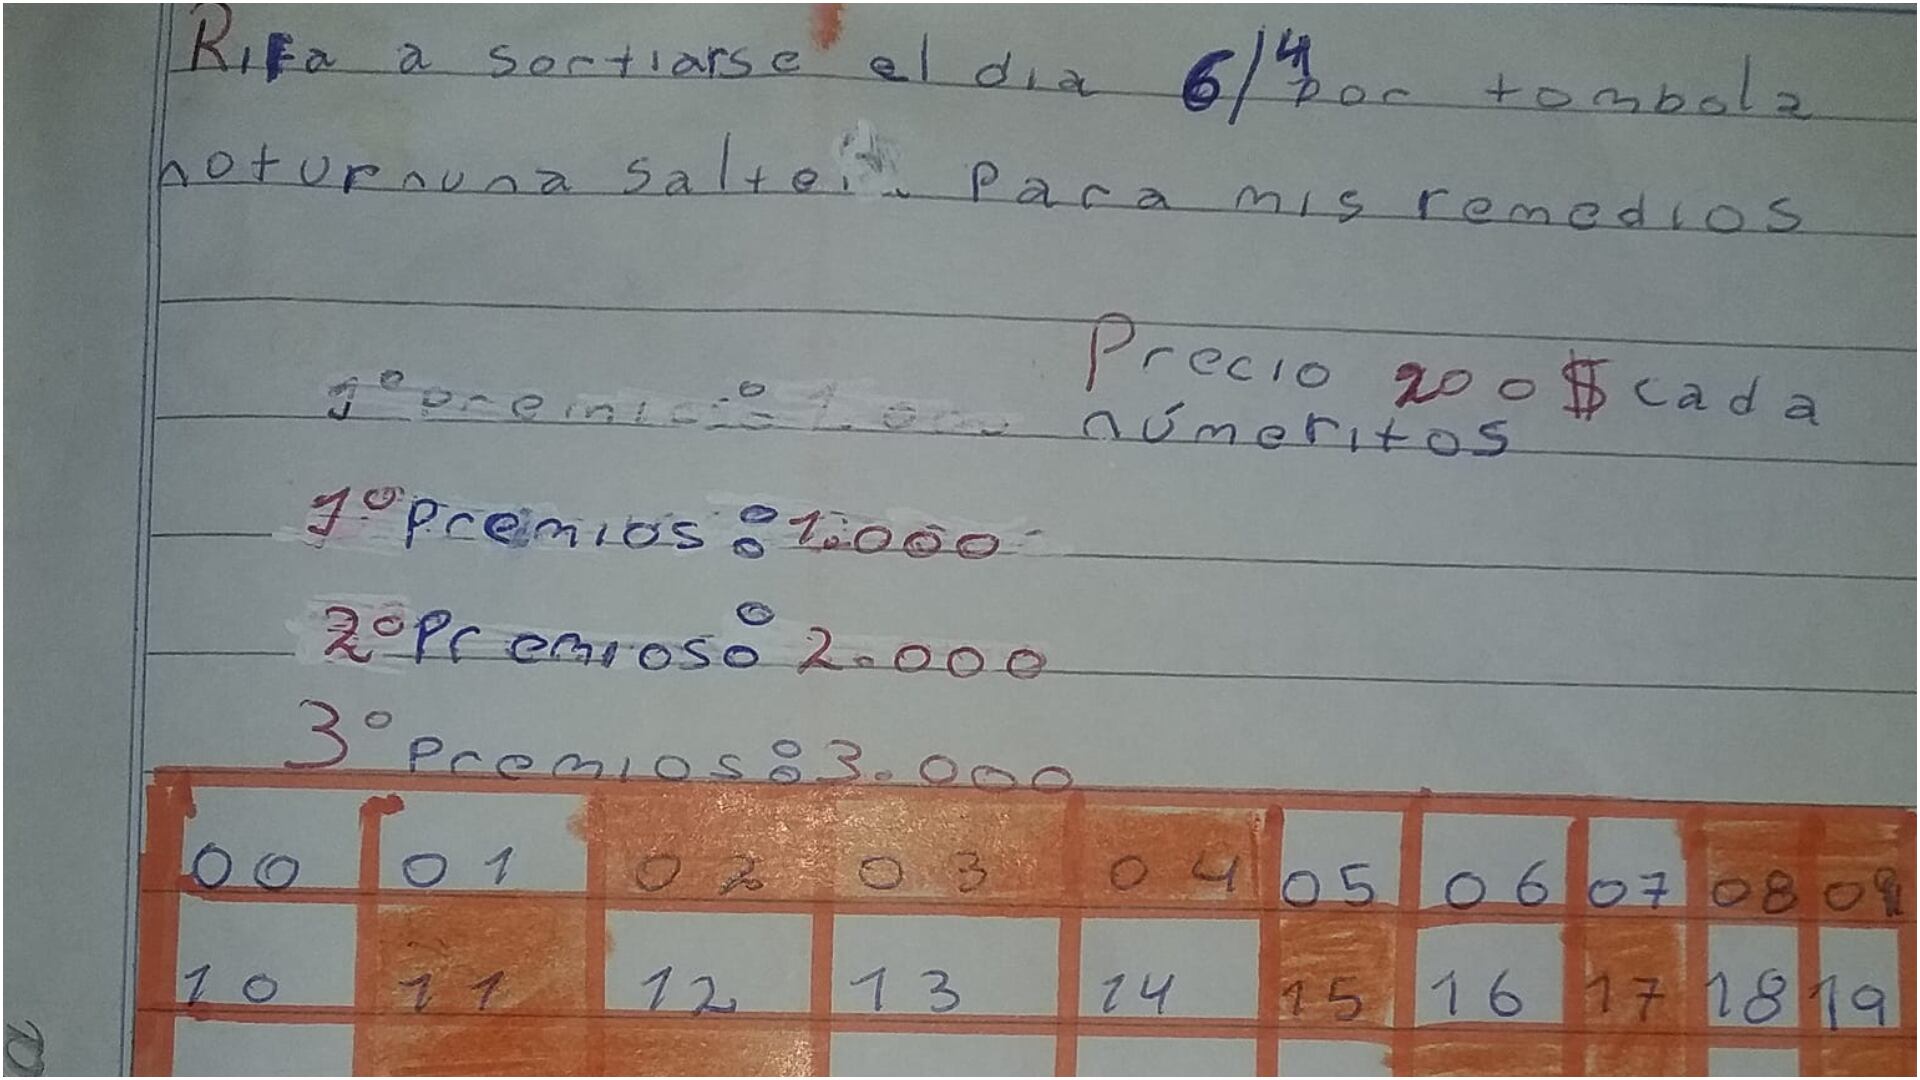 Rifa a sortiarse el dia 6/4 por tombola
noturnuna salte Para mis remedios
Precio 200 $ cada
númeritos
1º premios: 1.000
2º Premios: 2.000
3º Premios: 3.000
00 01 02 03 04 05 06 07 08 09
10 11 12 13 14 15 16 17 18 19